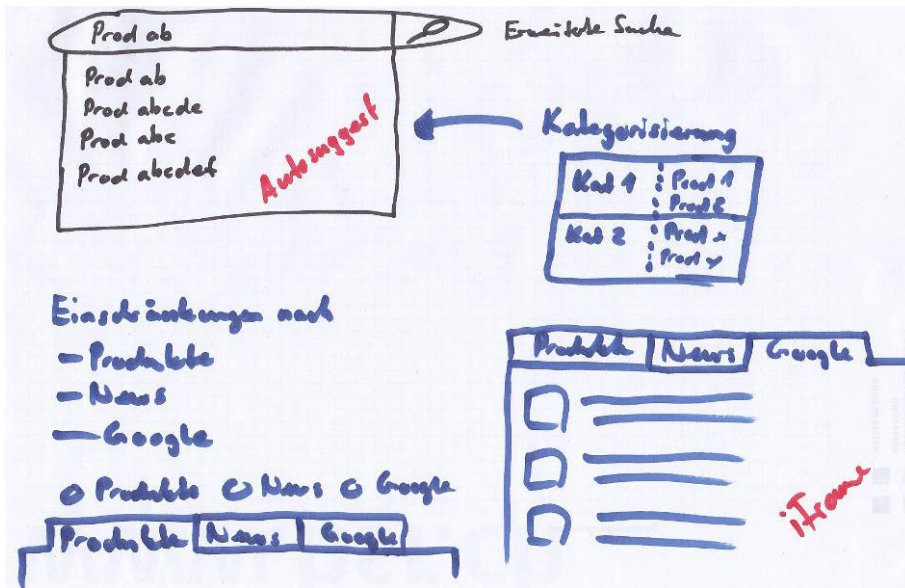 Prod ab
Erweiterte Suche
Prod ab
Prod abcde
Prod abc
Prod abcdef
Autosuggest
Kategorisierung
Kat 1 Prod 1
Prod 2
Kat 2 Prod x
Prod y
Einschränkungen nach
- Produkte
- News
- Google
Produkte News Google
Produkte News Google
Produkte News Google
iFrame